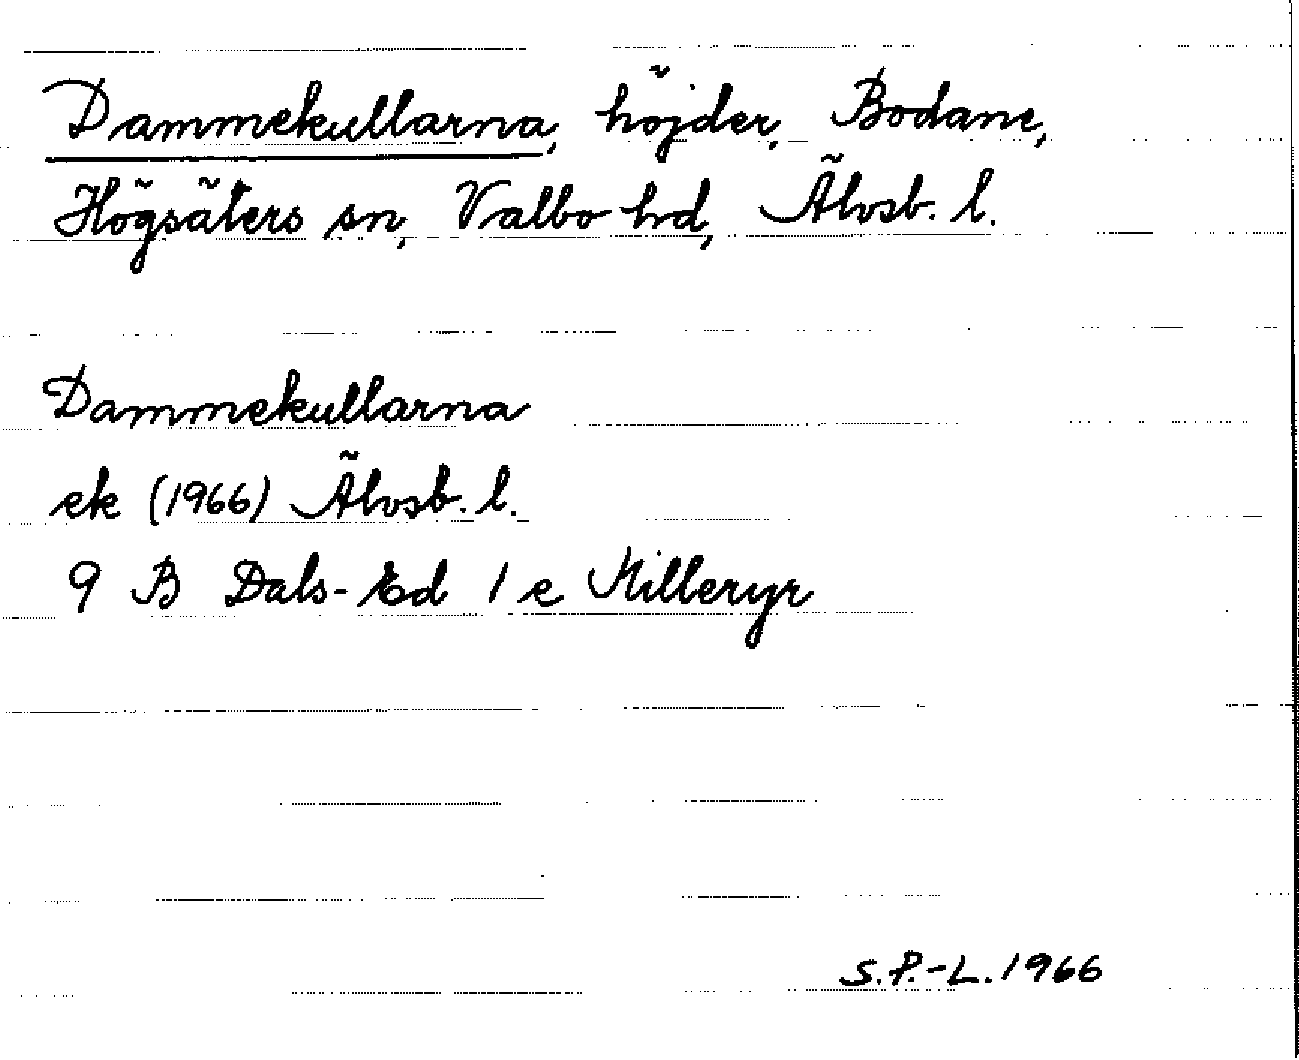 Dammekullarna, höjder, Bodane,
Högsäters sn, Valbo hd, Älvsb. l.
Dammekullarna
ek (1966) Älvsb. l.
9 B Dals-Ed 1 e Killeryr
S.P.-L. 1966